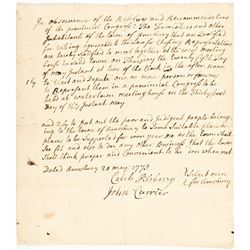 In observence of the Resolve and Recommendation
of the provincial Congress: The freeholders and other
Inhabitants of the town of Amesbury that are Qualified
for voting agreeable to the Law for Chosing Representatives
are hereby Notified to meet together at the west meeting
house in said town on Thursday the twenty fifth Day
of may Instant at two of the Clock in the after noon
1ly to elect and depute one or more person or persons
to Represent them in a provincial Congress to be
held at watertown meetinghouse on the Thirty first
Day of this Instant may
and 2ly to put out the poor and indigent people belong-
ing to the town of Amesbury to Some Suitable place or
places to be Supported the ensuing year as the town Shall
See fit and also to do any other Business that the town
Shall think proper and Convenient to be don when met
Dated Amesbury 20 may: 1775
Caleb Pilsbery
John Currier
Select men
for Amesbury